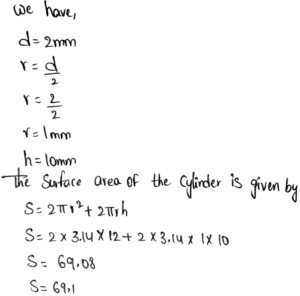 We have,
d = 2mm
r = d/2
r = 2/2
r = 1mm
h = 10mm
The Surface area of the Cylinder is given by
S = 2πr² + 2πrh
S = 2 x 3.14 x 12 + 2 x 3.14 x 1 x 10
S = 69.08
S = 69.1